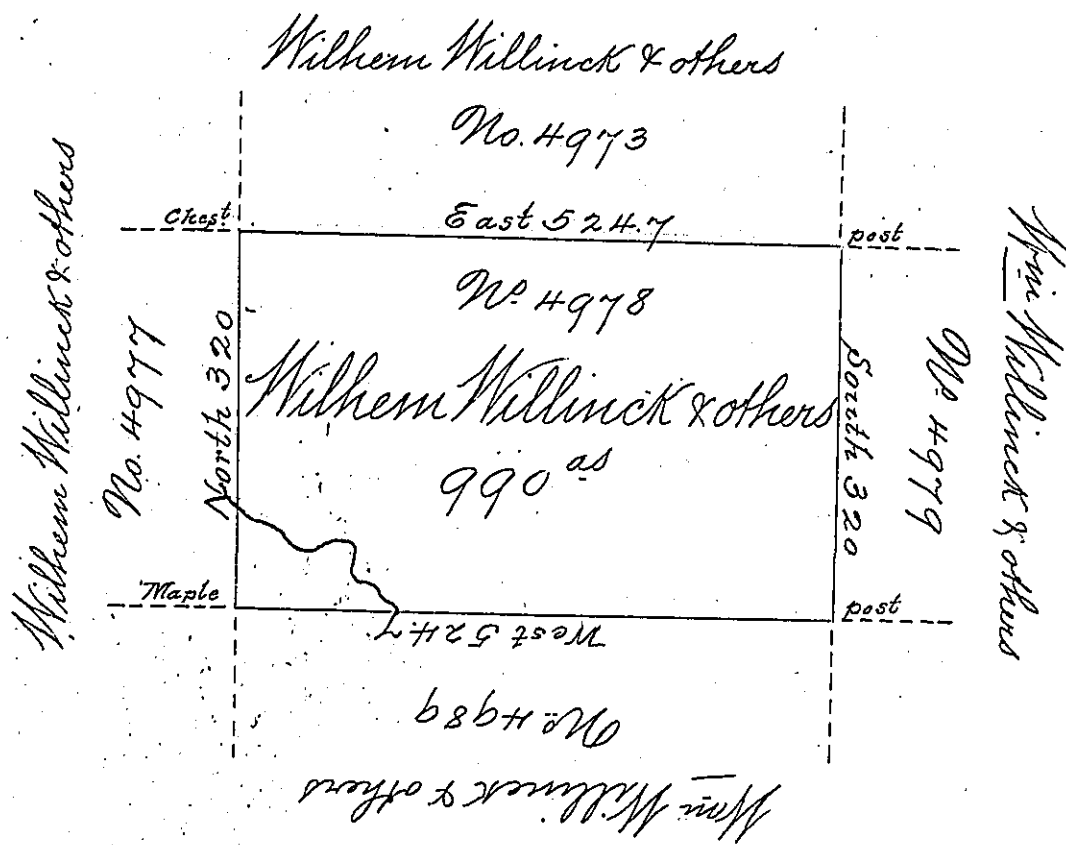 Wilhem Willinck & others
No. 4973
Chest.
East 524.7
post
Wilhem Willinck & others
No. 4977
North 320
No. 4978
Wilhem Willinck & others
990 as
South 320
No. 4979
Wm. Willinck & others
Maple
post
West 524.7
No. 4989
Wm. Willinck & others